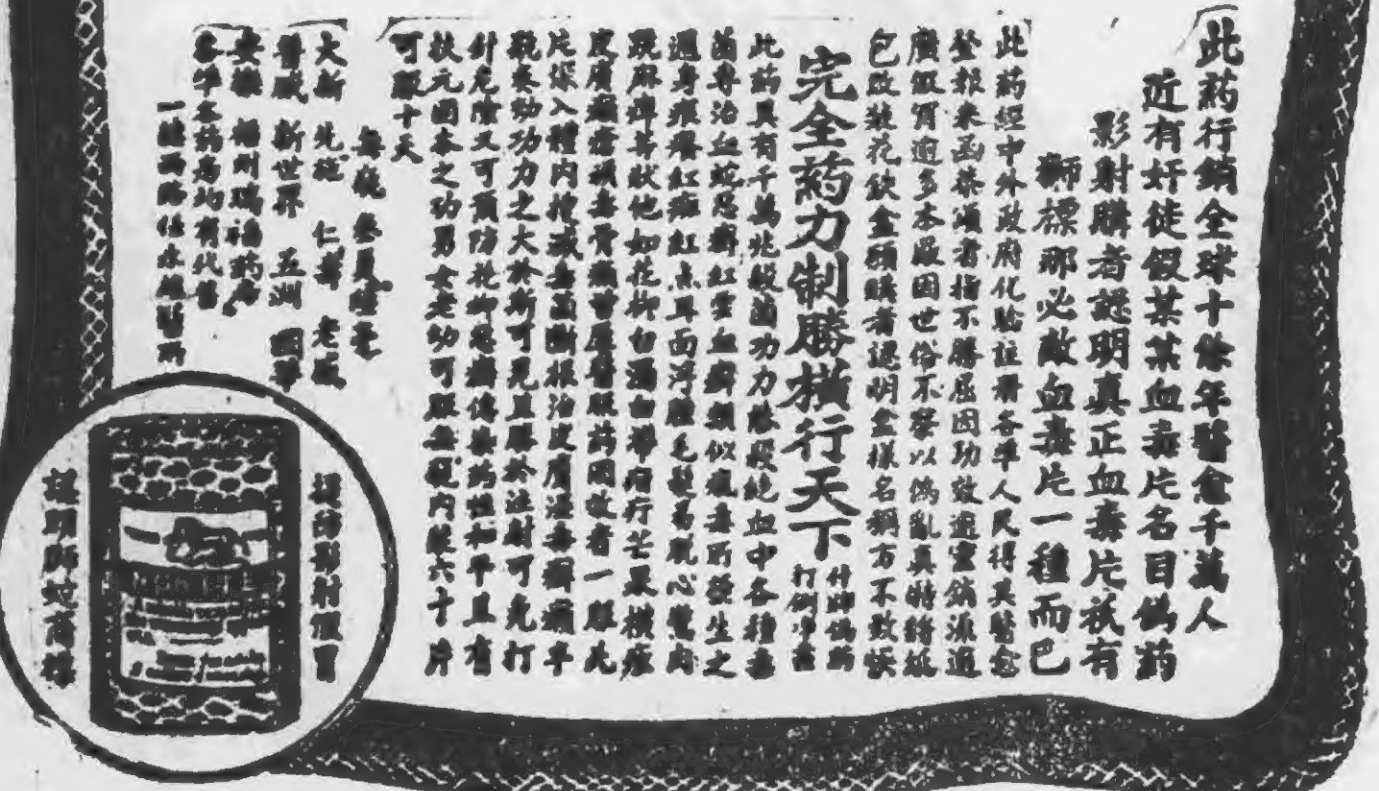 此葯行銷全球十餘年醫愈千萬人
近有奸徒假某某血毒片名目偽葯
影射購者認明真正血毒片祇有
獅標那必敵血毒片一種而巴
此葯經中外政府化驗註册各界人民得其醫愈
登報來函恭頌者指不勝屈因功效迺靈銷派迺
廣假冒迺多本廠因世俗不察以偽亂真特將紙
包改裝花鉄盒頭購者認明盒樣名稱方不致悞
完全葯力制勝橫行天下
打倒
此葯具有千萬功力能殺絕血中各種毒
菌專治血疙惡癬紅雲血癬類似瘋毒所發生之
週身痕癢紅瘢紅点耳面浮腫毛髮易脫心驚肉
跳麻痺等狀他如花柳白濁白帶疳疔芒果橫痃
皮膚癩瘡梅毒骨痛曾屢醫服葯罔效者一服此
片深入體內撲滅毒菌斷根治皮膚濕毒癬癩平
觀奏功功力之大於斯可見且勝於注射可免打
針危險又可預防花柳惡癩傳染葯性和平且有
扶元固本之功男女老幼可服每瓶內裝六十片
可服十天
每瓶 大洋
大新 先施 仁壽 老威
普威 新世界 五洲 國華
安樂 福州 瑞福葯房
各埠各葯房均有代售
謹防影射假冒
註明獅蛇商標